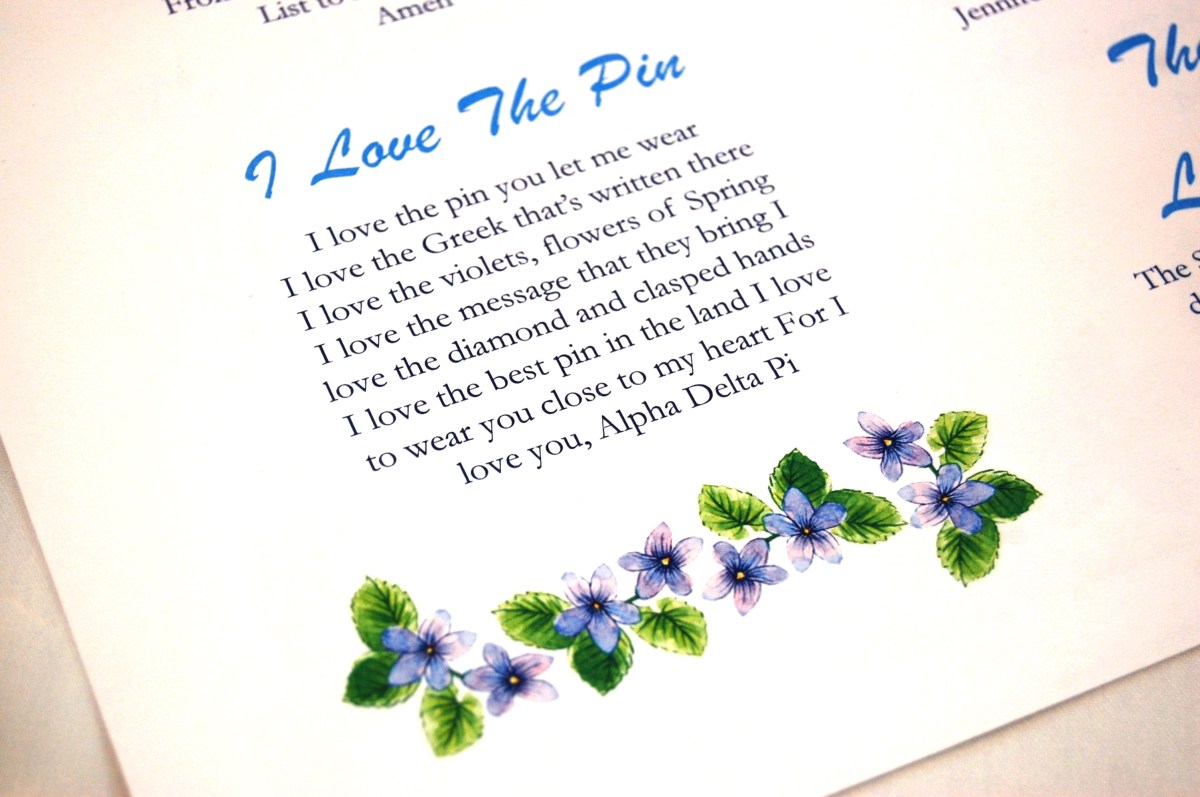 List to
Amen
I Love The Pin
I love the pin you let me wear
I love the Greek that's written there
I love the violets, flowers of Spring
I love the message that they bring I
love the diamond and clasped hands
I love the best pin in the land I love
to wear you close to my heart For I
love you, Alpha Delta Pi
The